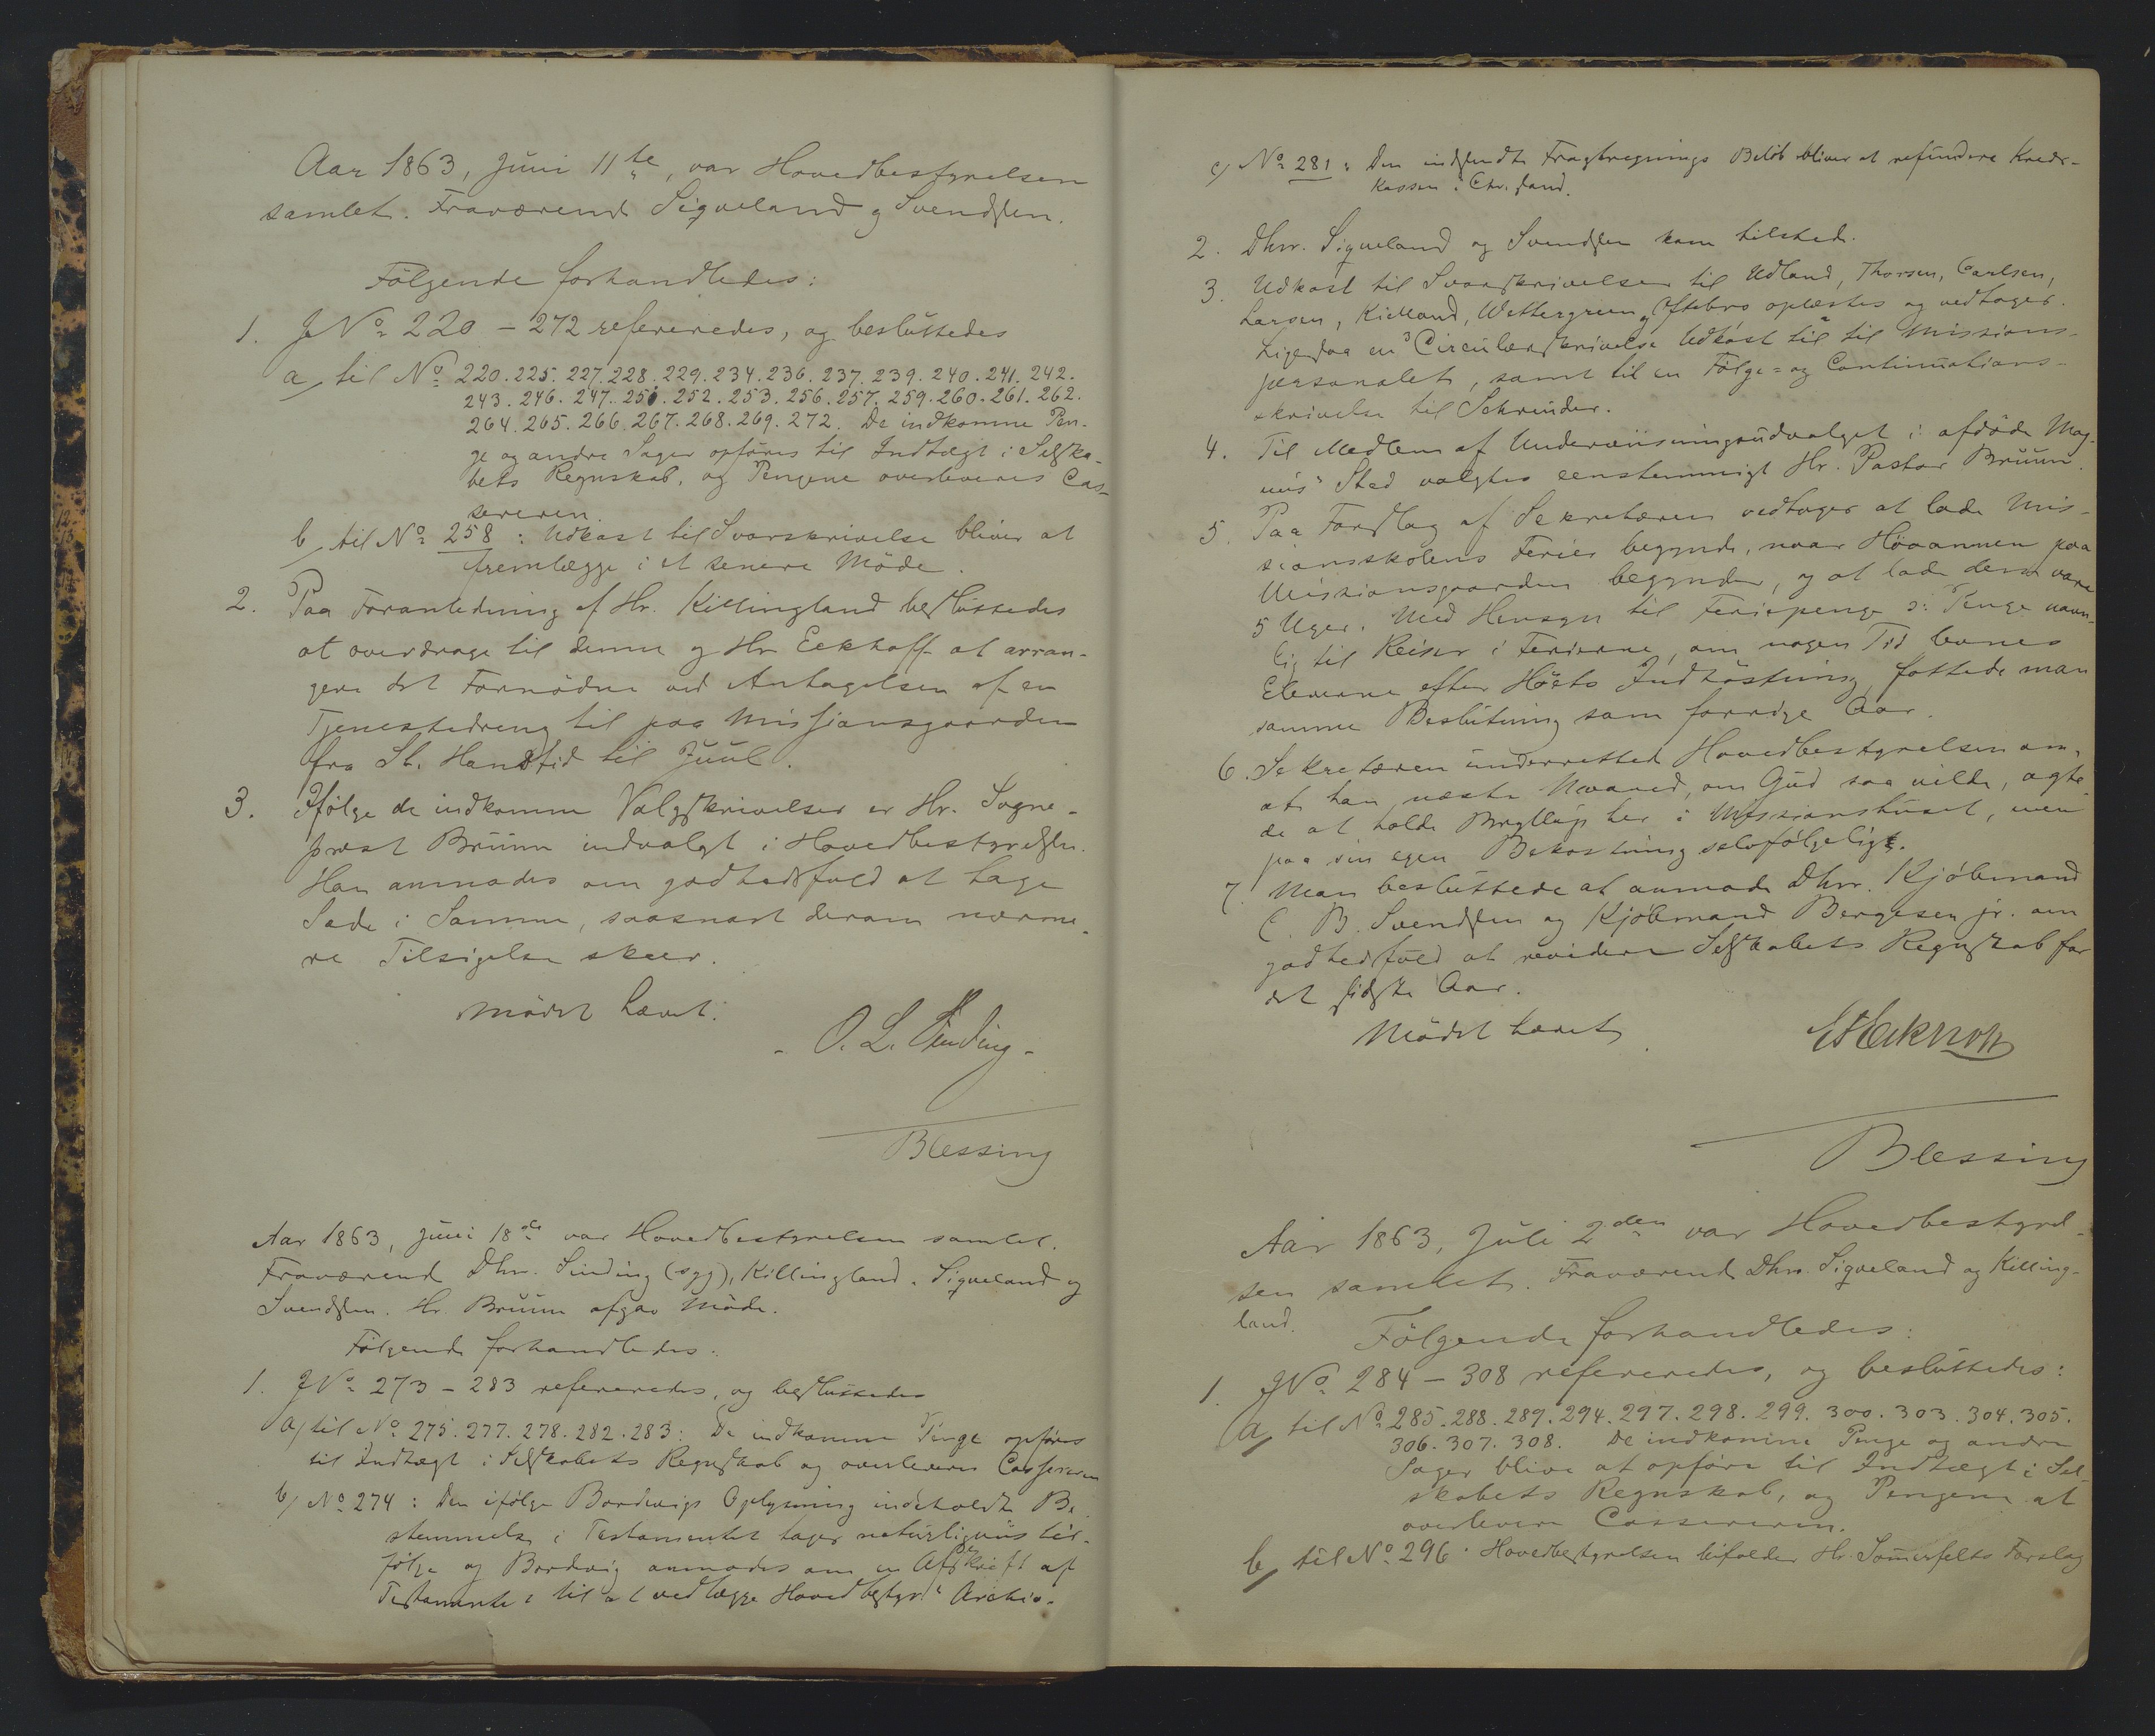 Aar 1863, Juni 11te, var Hovedbestyrelsen
samlet. Fraværend Siqveland og Svendsen.
Følgende forhandledes:
1. J No 220 - 272 refereredes, og besluttedes
a, til No 220. 225. 227. 228. 229. 234. 236. 237. 239. 240. 241. 242.
243. 246. 247. 250. 252. 253. 256. 257. 259. 260. 261. 262.
264. 265. 266. 267. 268. 269. 272. De indkomne Pen-
ge og andre Sager opføres til Indtægt i Selska-
bets Regnskab, og Pengene overleveres Cas-
sereren.
b, til No 258: Udkast til Svarskrivelse bliver at
fremlægge i et senere Møde.
2. Paa Foranledning af Hr. Killingland besluttedes
at overdrage til denne og Hr Eckhoff at arran-
gere det Fornødne ved Antagelsen af en
Tjenestedreng til paa Missionsgaarden
fra St. Hanstid til Juul.
3. Ifølge de indkomne Valgskrivelser er Hr. Sogne-
præst Bruun indvalgt i Hovedbestyrelsen.
Han anmodes om godhedsfuld at tage
Sæde i Samme, saasnart derom nærme-
re Tilsigelse skeer.
Mødet hævet.
O. L. Sinding
Blessing
Aar 1863, Juni 18de var Hovedbestyrelsen samlet.
Fraværend Dhrr. Sinding (syg), Killingland, Siqveland og
Svendsen. Hr. Bruun afgav Møde.
Følgende forhandledes.
1. J No 273 - 283 refereredes, og besluttedes
a, til No 275. 277. 278. 282. 283: De indkomne Penge opføres
til Indtægt i Selskabets Regnskab og overleveres Cassereren
b, No 274: Den ifølge Bordevigs Oplysning indeholdte Be-
stemmelse i Testamentet tages naturligviis til-
følge og Bordevig anmodes om en Afskrift af
Testamentet til at vedlægge Hovedbestyr.s Archiv.
c, No 281: Den indsendte Fragtregnings Beløb bliver at refundere Kreds-
kassen i Chr.sand.
2. Dhrr. Siqveland og Svendsen kom tilstede.
3. Udkast til Svarskrivelser til Udland, Thorsen, Carlsen,
Larsen, Kielland, Wettergreen og Oftebro oplæstes og vedtoges.
Ligesaa en Circulærskrivelse Udkast til til Missions-
personalet, samt til en Følge- og Continuations-
skrivelse til Schreuder.
4. Til Medlem af Underviisningsudvalget i afdøde Mag-
nus' Sted valgtes eenstemmigt Hr. Pastor Bruun.
5. Paa Forslag af Sekretæren vedtoges at lade Mis-
sionsskolens Ferier begynde, naar Høaannen paa
Missionsgaarden begynder, og at lade dem vare
5 Uger. Med Hensyn til Feriepenge o: Penge navn-
lig til Reiser i Ferierne, om nogen Tid levnes
Eleverne efter Høets Indhøstning, fattede man
samme Beslutning som forrige Aar.
6. Sekretæren underrettede Hovedbestyrelsen om,
at han næste Maaned, om Gud saa vilde, agte-
de at holde Bryllup her i Missionshuset, men
paa sin egen Bekostning selvfølgelig.
7. Man besluttede at anmode Dhrr. Kjøbmand
C. B. Svendsen og Kjøbmand Bergesen jr. om
godhedsfuld at revidere Selskabets Regnskab for
det sidste Aar.
Mødet hævet
Eckhoff
Blessing
Aar 1863, Juli 2den var Hovedbestyrel-
sen samlet. Fraværende Dhrr. Siqveland og Killing-
land.
Følgende forhandledes:
1. J No 284 - 308 refereredes, og besluttedes:
a, til No 285. 288. 289. 294. 297. 298. 299. 300. 303. 304. 305.
306. 307. 308. De indkomne Penge og andre
Sager blive at opføre til Indtægt i Sel-
skabets Regnskab, og Pengene at
overlevere Cassereren.
b, til No 296. Hovedbestyrelsen bifalder Hr. Somerfelts Forslag